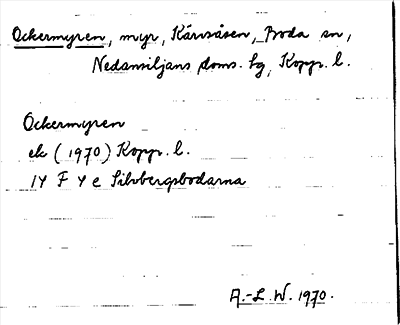 Ockermyren, myr, Kärvsåsen, Boda sn,
Nedansiljans doms. hg, Kopp. l.
Ockermyren
ek (1970) Kopp. l.
14 F 4 e Silvbergsbodarna
A.-L. W. 1970.